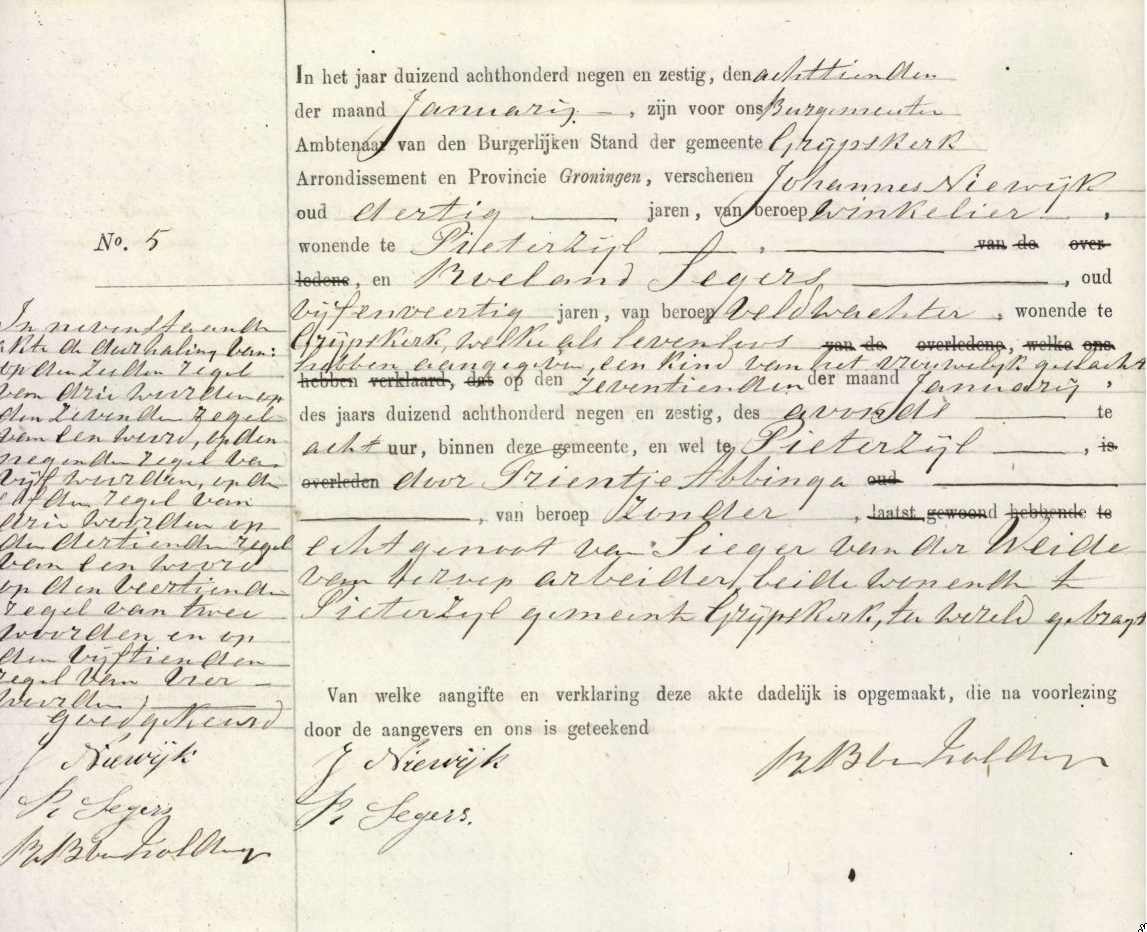 No. 5
In nevenstaande
akte de doorhaling van:
op den zesden regel
van drie woorden op
den zevenden regel
van een woord, op den
negenden regel van
vijf woorden, op den
elfden regel van
drie woorden op
den dertienden regel
van een woord
op den veertienden
regel van twee
woorden en op
den vijftienden
regel van vier
woorden
goedgekeurd
J Niewijk
R. Segers
In het jaar duizend achthonderd negen en zestig, den achttienden
der maand Januarij —, zijn voor ons Burgemeester
Ambtenaar van den Burgerlijken Stand der gemeente Grijpskerk
Arrondissement en Provincie Groningen, verschenen Johannes Niewijk
oud dertig — jaren, van beroep winkelier —,
wonende te Pieterzijl —, — van de over-
ledene, en Roeland Segers —, oud
vijfenveertig jaren, van beroep veldwachter, wonende te
Grijpskerk, welke als levenloos van de overledene, welke ons
hebben aangegeven, een kind van het vrouwelijk geslacht
hebben verklaard, dat op den zeventienden der maand Januarij,
des jaars duizend achthonderd negen en zestig, des avonds — te
acht uur, binnen deze gemeente, en wel te Pieterzijl —, is
overleden door Trientje Abbinga oud —
—, van beroep zonder, laatst gewoond hebbende te
echtgenoot van Sieger van der Weide
van beroep arbeider, beide wonende te
Pieterzijl gemeente Grijpskerk, ter wereld gebragt
Van welke aangifte en verklaring deze akte dadelijk is opgemaakt, die na voorlezing
door de aangevers en ons is geteekend
J Niewijk
R. Segers.